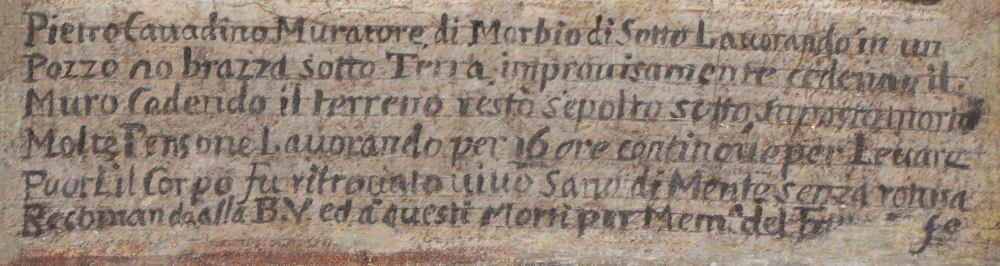 Pietro Cavadino Muratore di Morbio di Sotto Lavorando in un
Pozzo 20 brazza sotto Terra improvisamente cedenan il
Muro Cadendo il terreno restò sepolto sotto, supposta morto
Molte Persone Lavorando per 16 ore continóve per Levare
Fuori il Corpo fu ritrovato vivo Sano di Mente senza rotura
Recomanda alla B.V. ed a questi Morti per Mem.a del fe